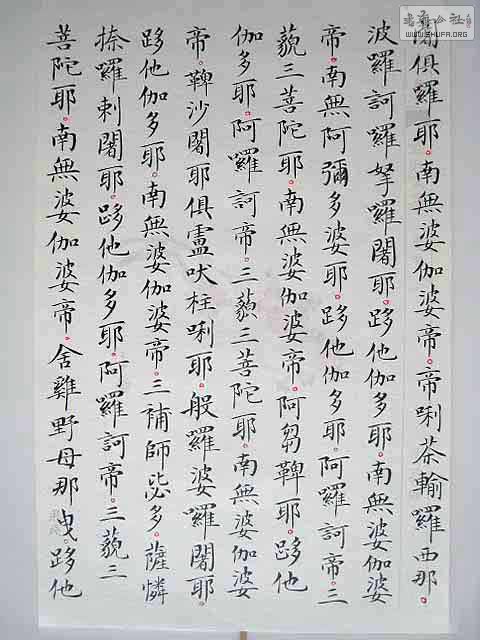 闍俱羅耶。南無婆伽婆帝。帝唎茶輸羅西那。
波羅訶羅拏羅闍耶。跢他伽多耶。南無婆伽婆
帝。南無阿彌多婆耶。跢他伽多耶。阿羅訶帝。三
藐三菩陀耶。南無婆伽婆帝。阿芻鞞耶。跢他
伽多耶。阿羅訶帝。三藐三菩陀耶。南無婆伽婆
帝。鞞沙闍耶俱盧吠柱唎耶。般羅婆羅闍耶。
跢他伽多耶。南無婆伽婆帝。三補師毖多。薩憐
捺羅剌闍耶。跢他伽多耶。阿羅訶帝。三藐三
菩陀耶。南無婆伽婆帝。舍雞野母那曳。跢他
WWW.SHUFA.ORG